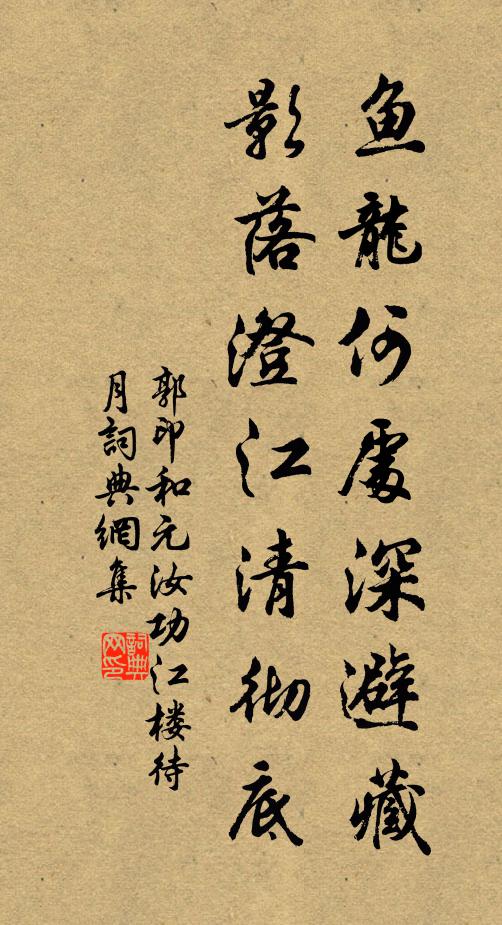 鱼龍何處深避藏
影落澄江清彻底
郭印和元汝功江楼待
月詞典網集
詞典网印